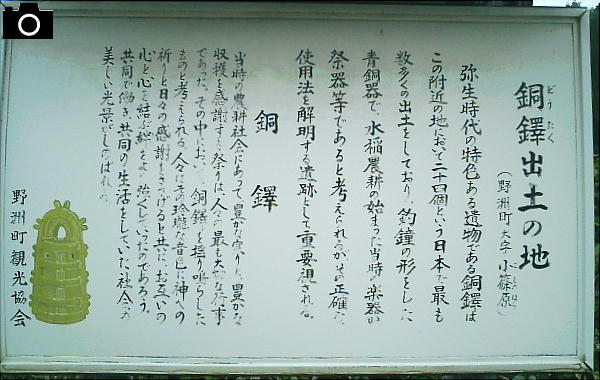 銅鐸出土の地
どう たく
（野洲町大字小篠原）
弥生時代の特色ある遺物である銅鐸は
この附近の地において二十四個という日本で最も
数多くの出土をしており、釣鐘の形をした
青銅器で、水稲農耕の始まった当時の楽器か
祭器等であると考えられるがその正確な
使用法を解明する遺跡として重要視される。
銅鐸
当時の農耕社会にあって、豊かな実りと、豊かな
収穫を感謝する祭りは、人々の最も大切な行事
であった。その中において銅鐸を揺り鳴らした
ものと考えられる。人々はその玲瓏な音色に神への
祈りと日々の感謝をささげると共に、お互いの
心と心を結ぶ絆をより強くしていったのであろう。
共同で働き、共同の生活をしていた社会の
美しい光景がしのばれる。
野洲町観光協会